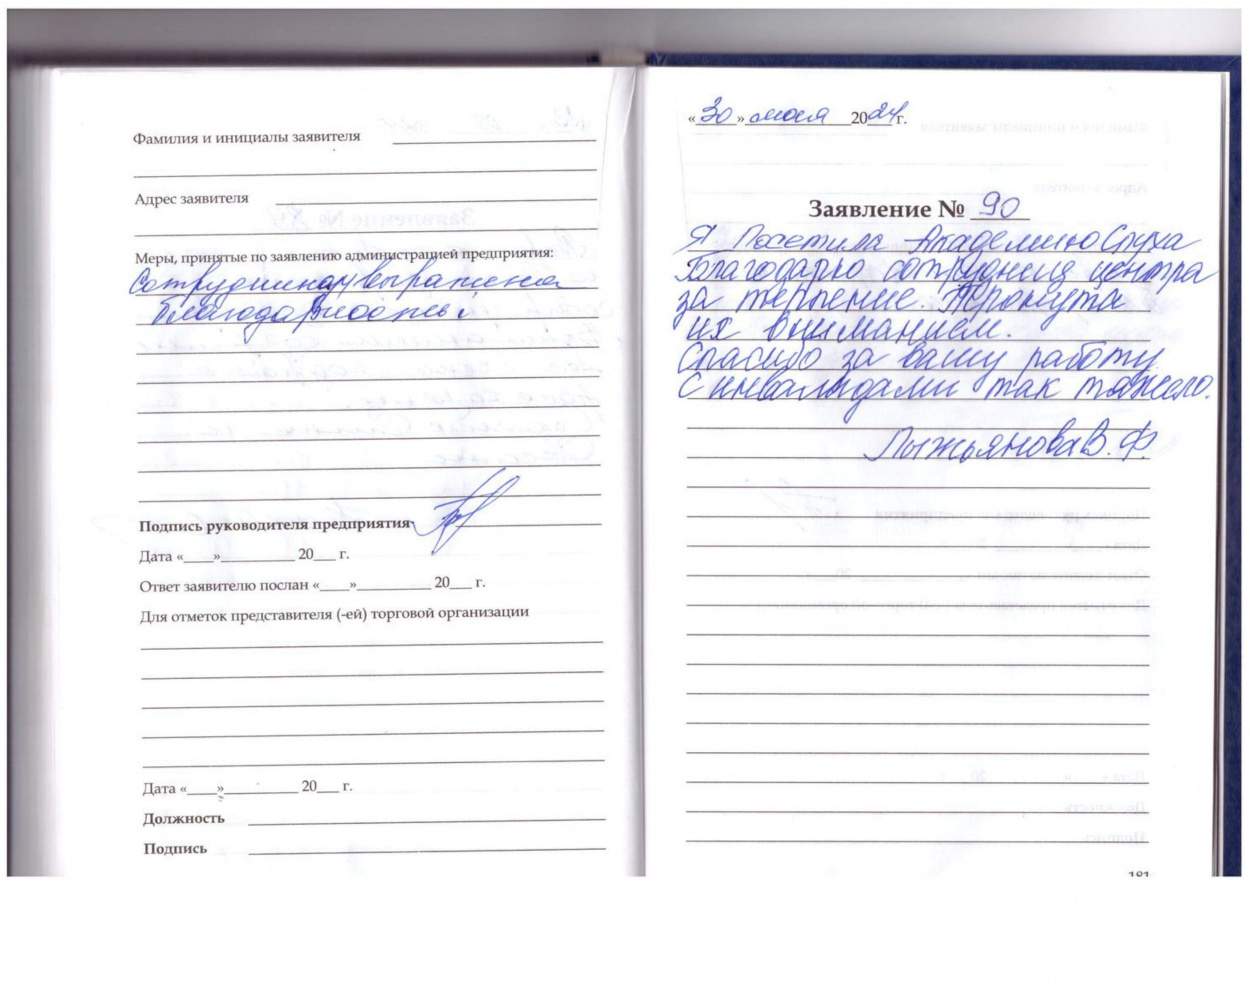 Фамилия и инициалы заявителя
Адрес заявителя
Меры, принятые по заявлению администрацией предприятия:
Сотрудникам выражена
благодарность
Подпись руководителя предприятия
Дата «____»__________ 20___ г.
Ответ заявителю послан «____»__________ 20___ г.
Для отметок представителя (-ей) торговой организации
Дата «____»__________ 20___ г.
Должность
Подпись
«30» июля 2024 г.
Заявление № 90
Я Посетила Академию Слуха
Благодарю сотрудниц центра
за терпение. Тронута
их вниманием.
Спасибо за вашу работу
с инвалидами так тяжело.
Лыжьянова В. Ф.
181